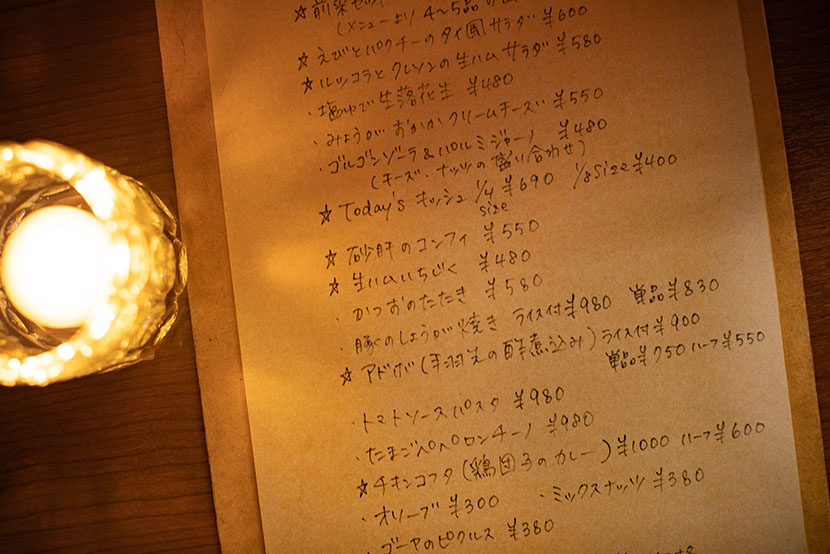 ☆前菜セット
(メニューより 4〜5品の
☆えびとパクチーのタイ風サラダ ¥600
☆ルッコラとクレソンの生ハムサラダ ¥580
・塩ゆで生落花生 ¥480
・みょうがおかかクリームチーズ ¥550
・ゴルゴンゾーラ&パルミジャーノ ¥480
(チーズ・ナッツの盛り合わせ)
☆Today's キッシュ 1/4 size ¥690 1/8 size ¥400
☆砂肝のコンフィ ¥550
☆生ハムいちじく ¥480
・かつおのたたき ¥580
・豚のしょうが焼き ライス付¥980 単品¥830
☆アドボ(手羽先の酢煮込み) ライス付¥900
単品¥750 ハーフ¥550
・トマトソースパスタ ¥980
・たまごペペロンチーノ ¥980
☆チキンコフタ(鶏団子のカレー) ¥1000 ハーフ¥600
・オリーブ ¥300 ・ミックスナッツ ¥380
・ゴーヤのピクルス ¥380